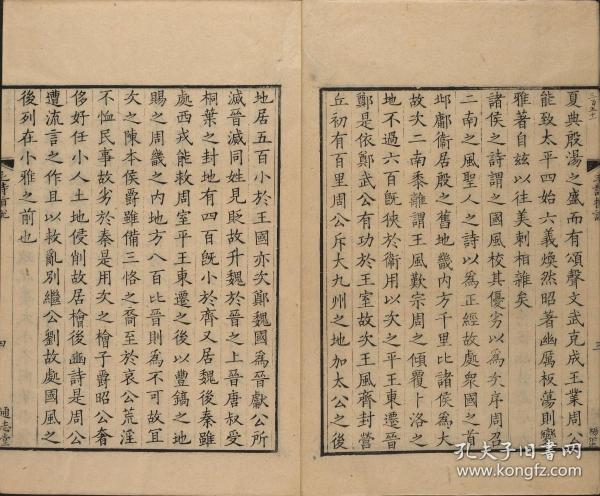 三百五十
夏典殷湯之盛而有頌聲文武克成王業周公
能致太平四始六義煥然昭著幽厲板蕩則變
雅著自兹以往美刺相雜矣
諸侯之詩謂之國風校其優劣以為次序周召
二南之風聖人之詩以為正經故處衆國之首
邶鄘衞居殷之舊地畿内方千里比諸侯為大
故次二南黍離謂王風歎宗周之傾覆卜洛之
地不過六百旣狹於衞用以次之平王東遷晉
鄭是依鄭武公有功於王室故次王風齊封營
丘初有百里周公斥大九州之地加太公之後
地居五百小於王國亦次鄭魏國為晉獻公所
滅晉滅同姓見貶故升魏於晉之上晉唐叔受
桐葉之封地有四百旣小於齊又居魏後秦雖
處西戎能救周室平王東遷之後以豐鎬之地
賜之周畿之内地方八百比晉則為不可故冝
次之陳本侯爵雖備三恪之裔至於哀公荒淫
不恤民事故劣於秦是用次之檜子爵昭公奢
侈好任小人土地侵削故居檜後豳詩是周公
遭流言之作且以救亂别繼公劉故處國風之
後列在小雅之前也
四
通志堂
孔夫子旧書网
www.kongfz.com